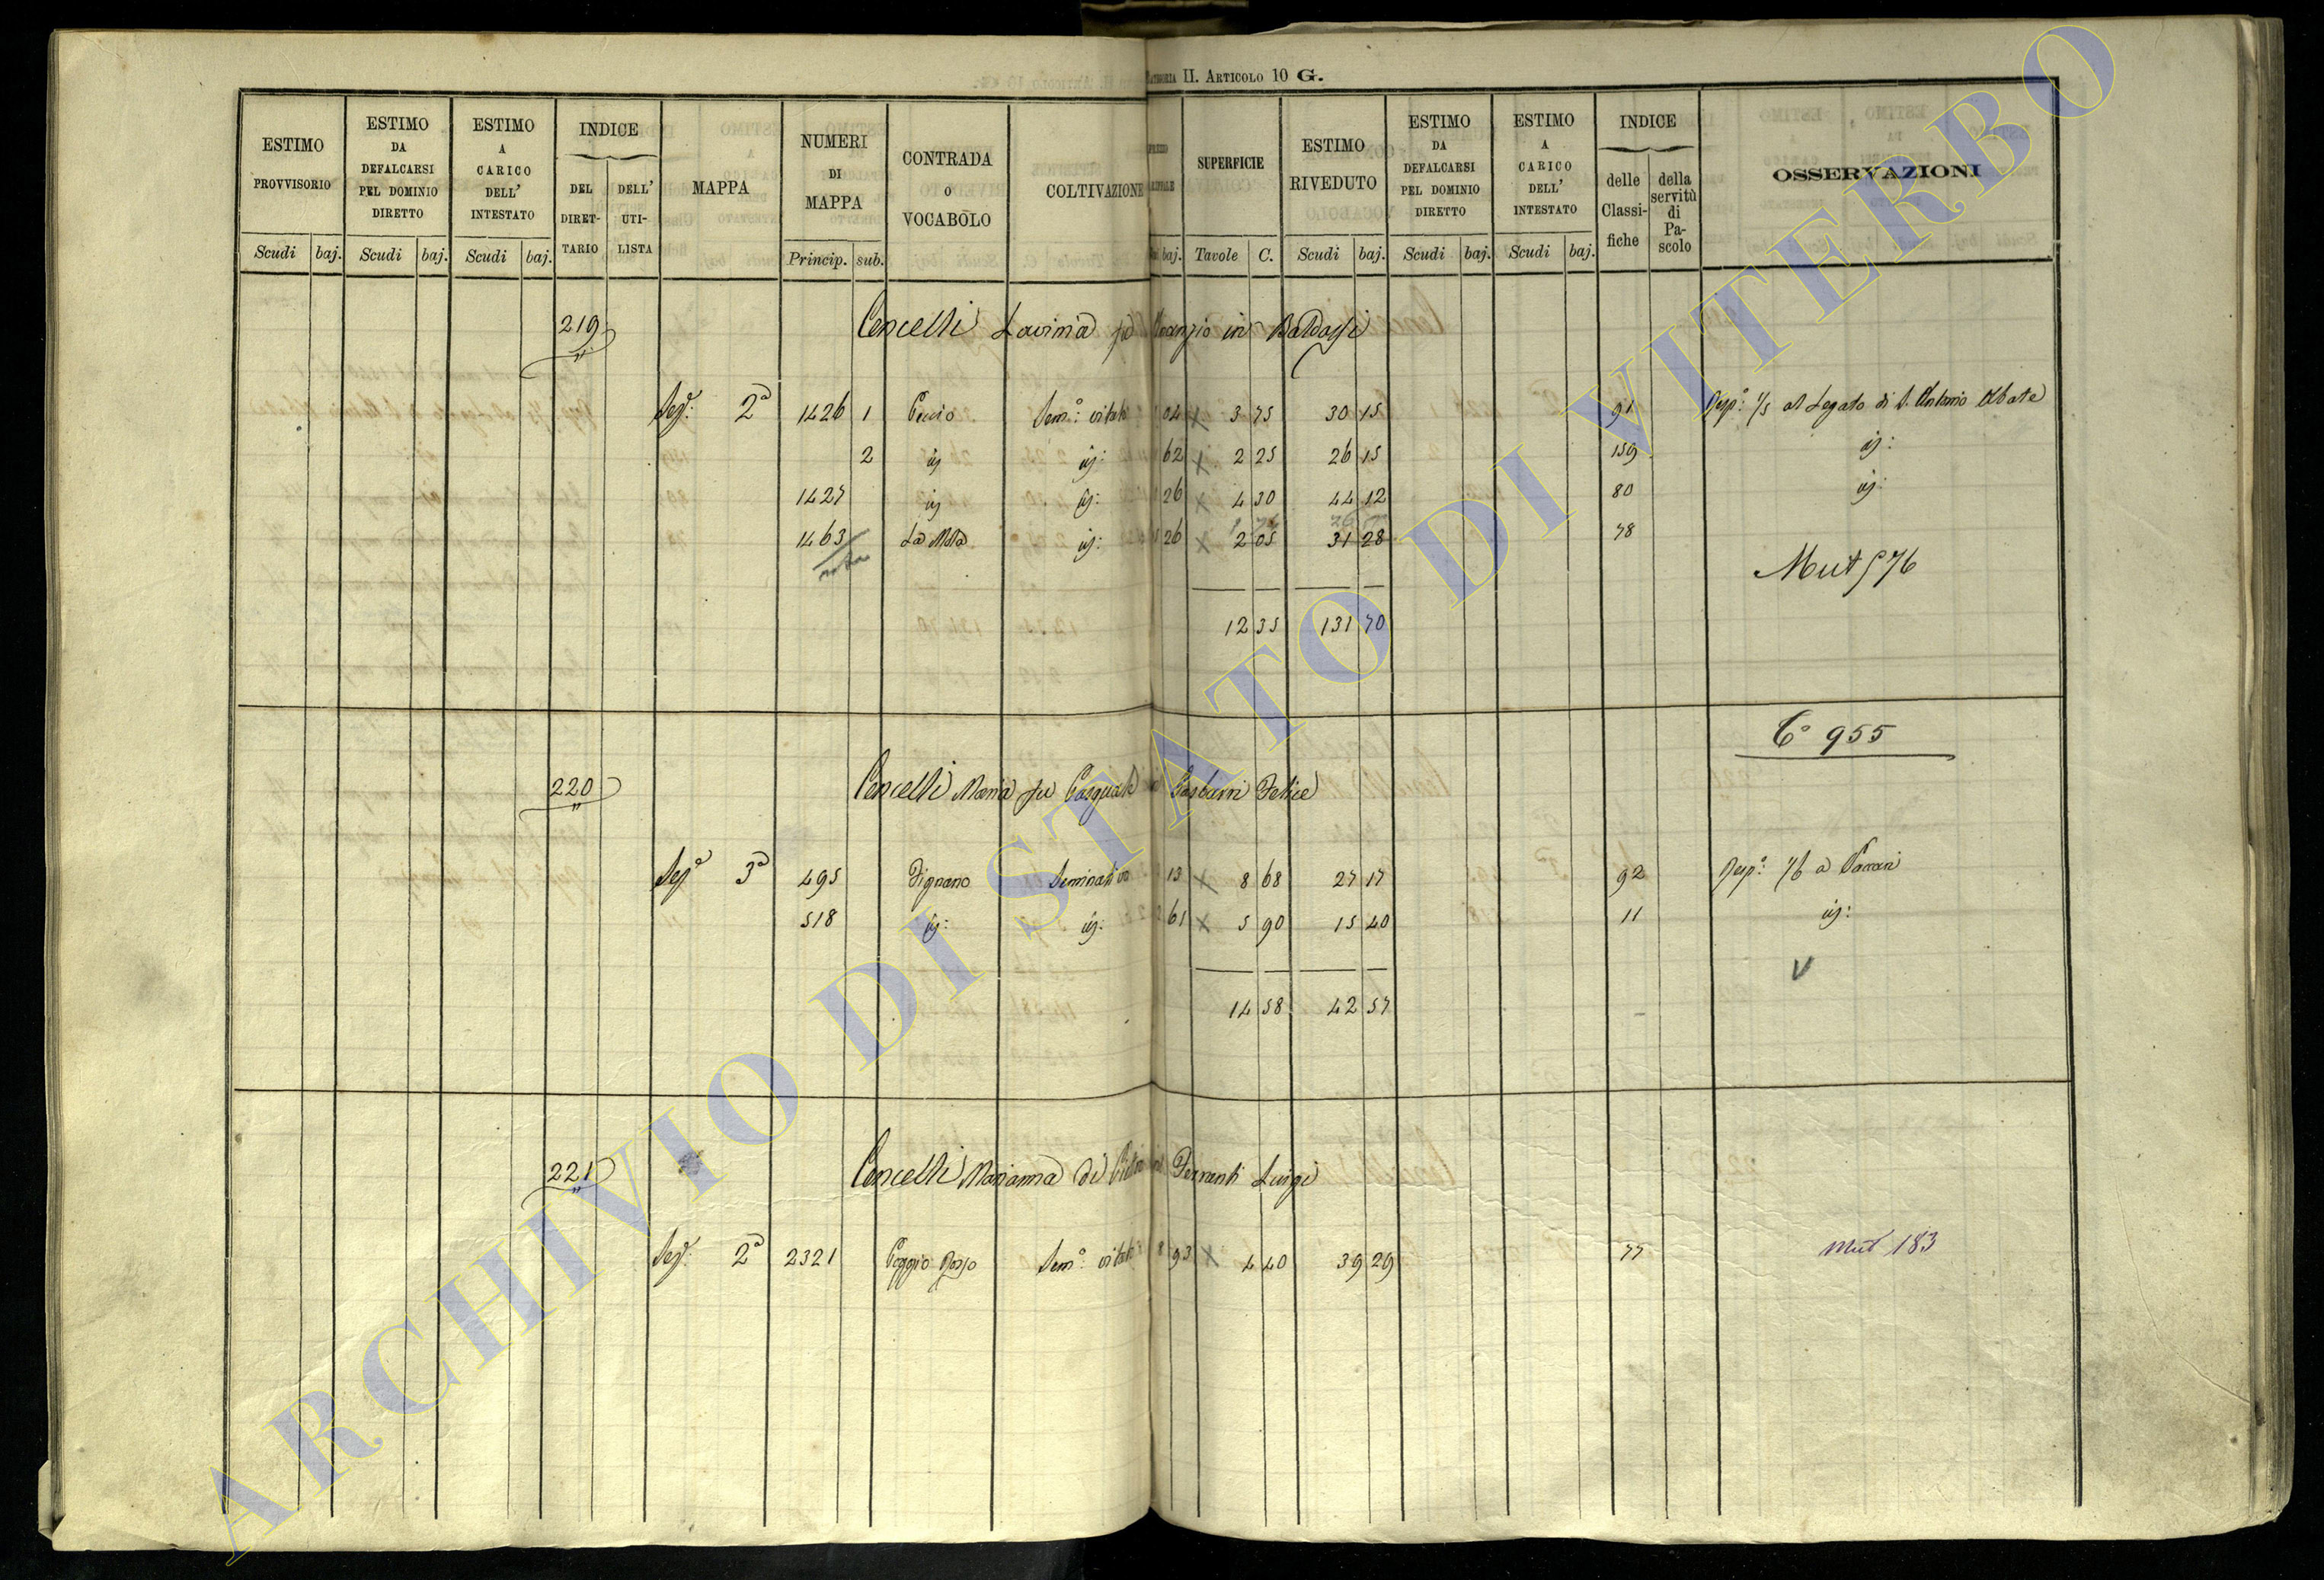 CATEGORIA II. ARTICOLO 10 G.
ESTIMO PROVVISORIO
ESTIMO DA DEFALCARSI PEL DOMINIO DIRETTO
ESTIMO A CARICO DELL' INTESTATO
INDICE
DEL DIRETTARIO
DELL' UTILISTA
MAPPA
NUMERI DI MAPPA
CONTRADA O VOCABOLO
COLTIVAZIONE
SUPERFICIE
ESTIMO RIVEDUTO
ESTIMO DA DEFALCARSI PEL DOMINIO DIRETTO
ESTIMO A CARICO DELL' INTESTATO
INDICE
delle Classifiche
della servitù di Pascolo
OSSERVAZIONI
Scudi baj. Scudi baj. Scudi baj. Princip. sub. baj. Tavole C. Scudi baj. Scudi baj. Scudi baj.
219 Cencelli Lavinia in
Sez.e 2a 1426 1 Sem.o vitato 04 3 75 30 15 91 Resp.e 1/5 al Legato di S. Antonio Abate
2 id id: 62 2 25 26 15 159 id:
1427 id id: 26 4 30 44 12 80 id:
1463 La Mola id: 26 2 05 31 28 78
Mut 576
12 35 131 70
C° 955
220 Cencelli Maria fu Pasquale Gasbarri Felice
Sez.e 3a 495 Fignano Seminativo 13 8 68 27 17 92 Resp.e 1/6 a
518 id: id: 61 5 90 15 40 11 id:
V
14 58 42 57
221 Cencelli Marianna di Ferranti Luigi
Sez.e 2a 2321 Poggio Rosso Sem.o vitato 93 4 40 39 29 77 Mut 183
ARCHIVIO DI STATO DI VITERBO